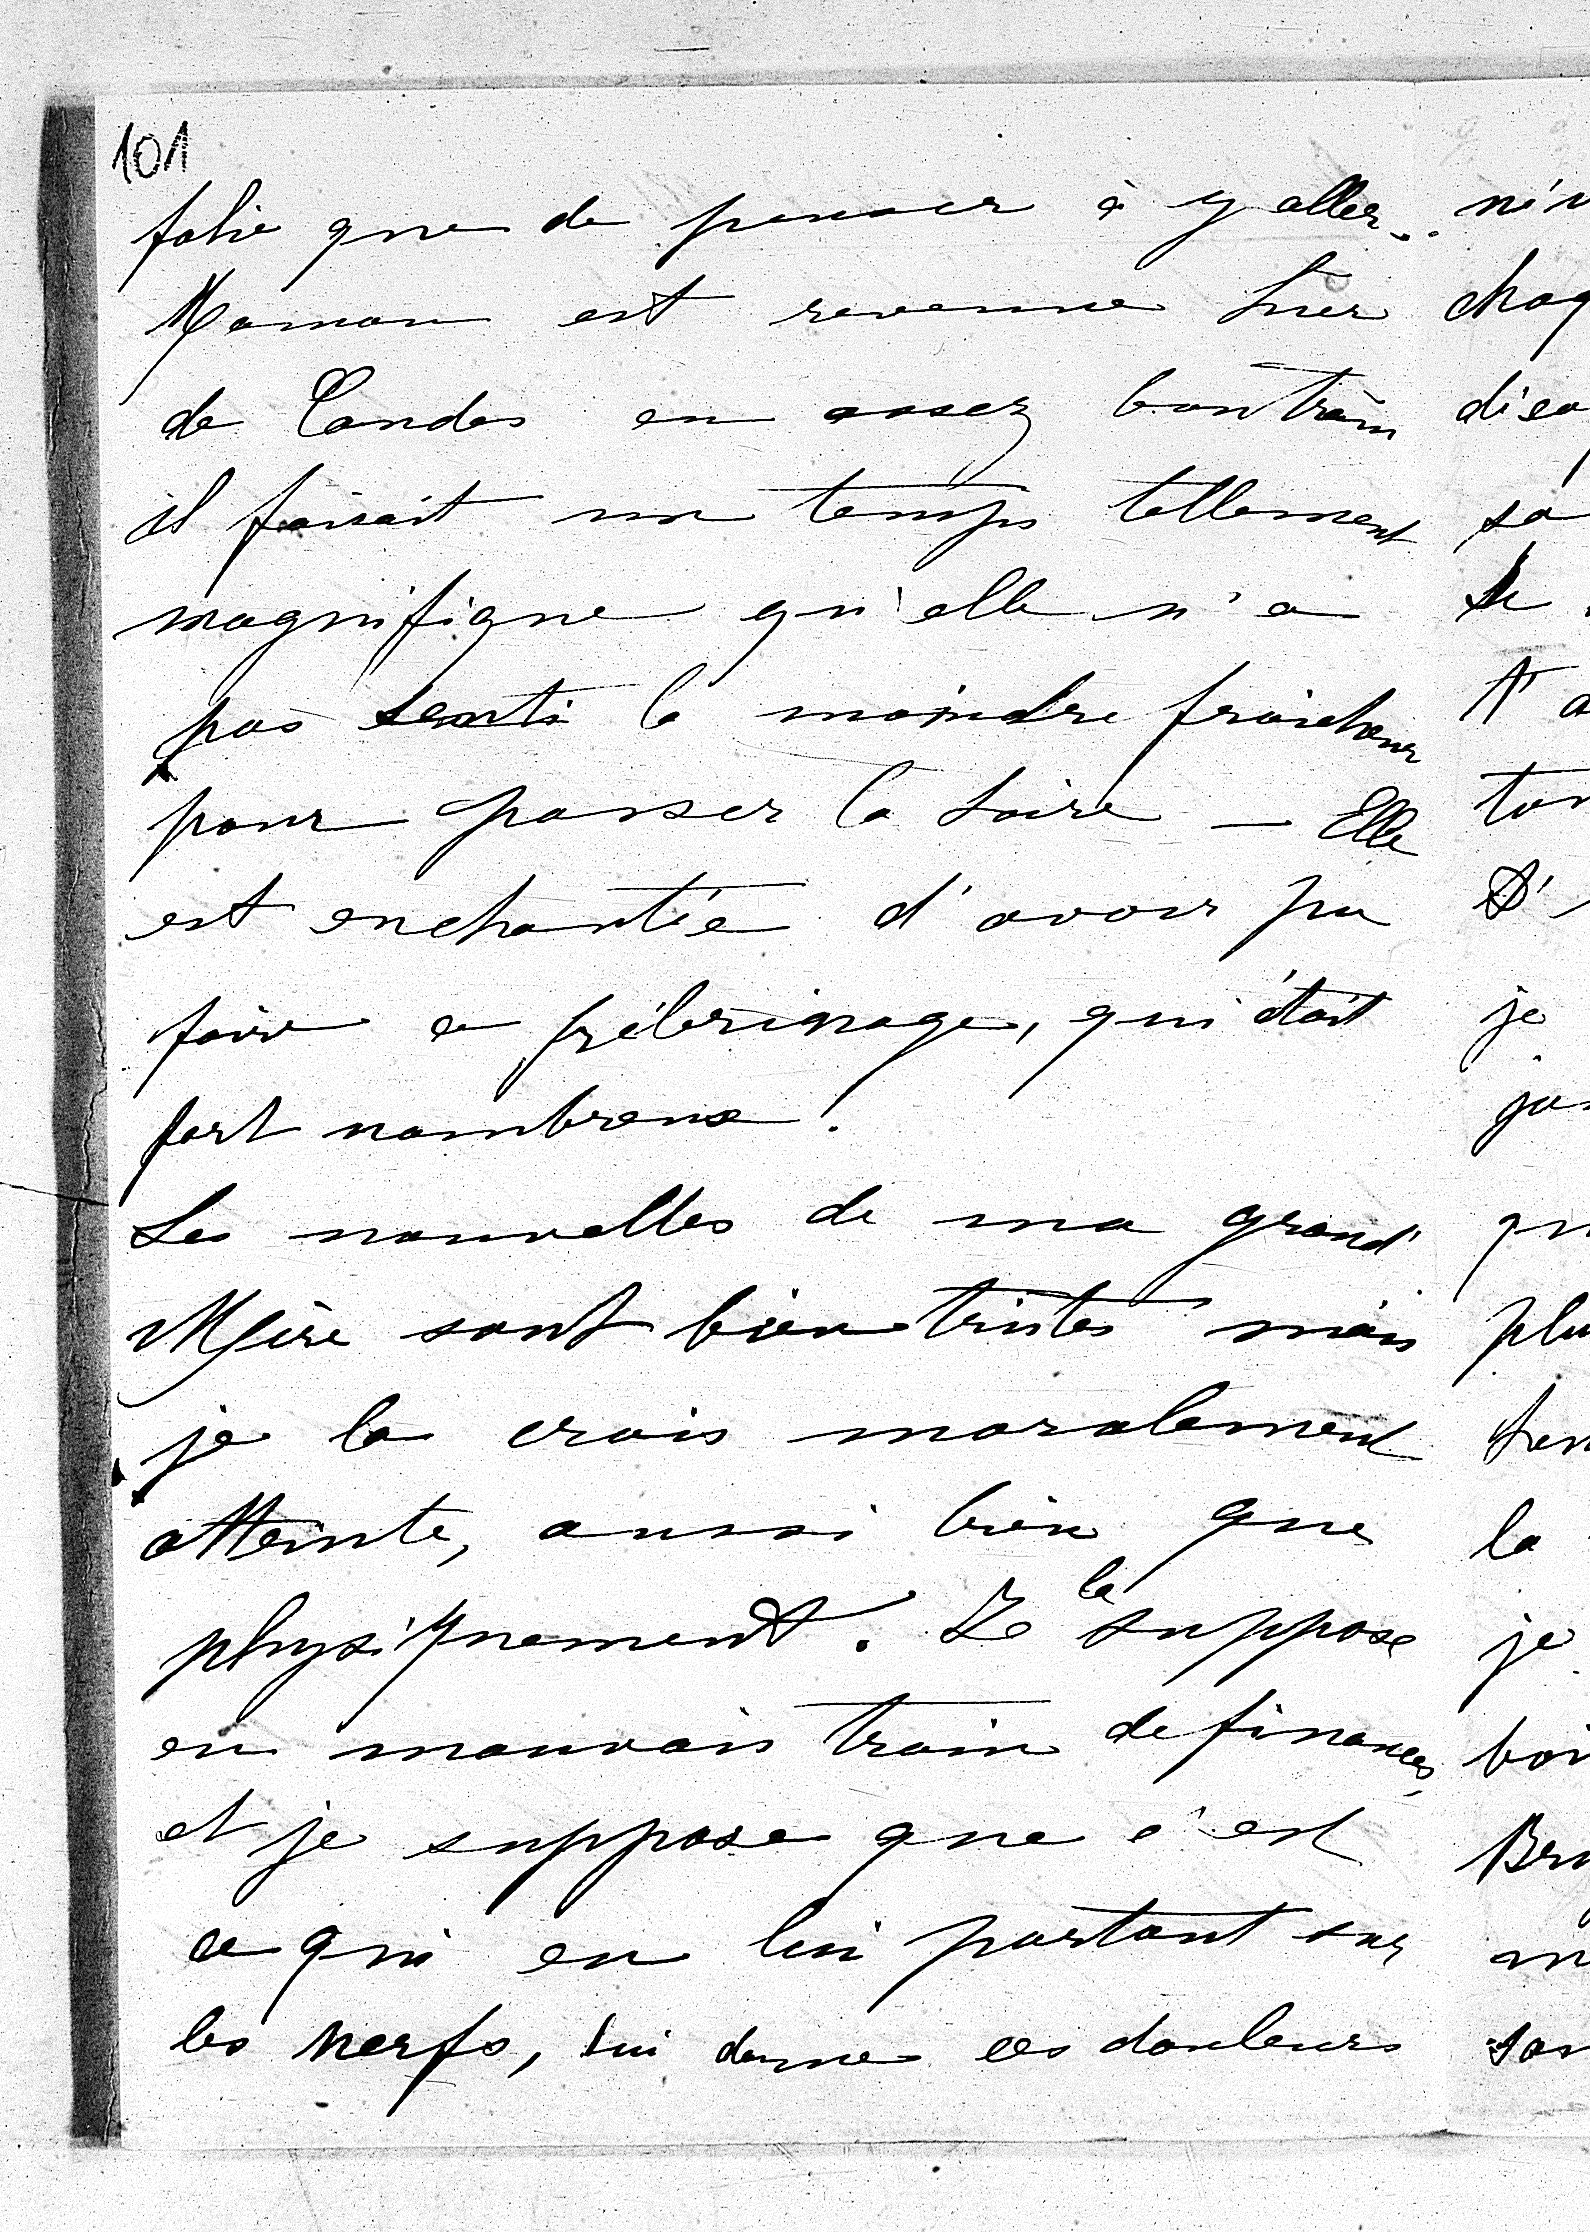 101
folie que de penser à y aller..
Maman est revenue hier
de Candes en assez bon train
il faisait un temps tellement
magnifique qu'elle n'a
pas senti la moindre fraicheur
pour passer la Loire — Elle
est enchantée d'avoir pu
faire ce pélerinage, qui était
fort nombreux.
Les nouvelles de ma grand'
Mère sont bien tristes mais
je la crois moralement
atteinte, aussi bien que
physiquement. Je la suppose
en mauvais train de finances,
et je suppose que c'est
ce qui en lui portant sur
les nerfs, lui donne ces douleurs